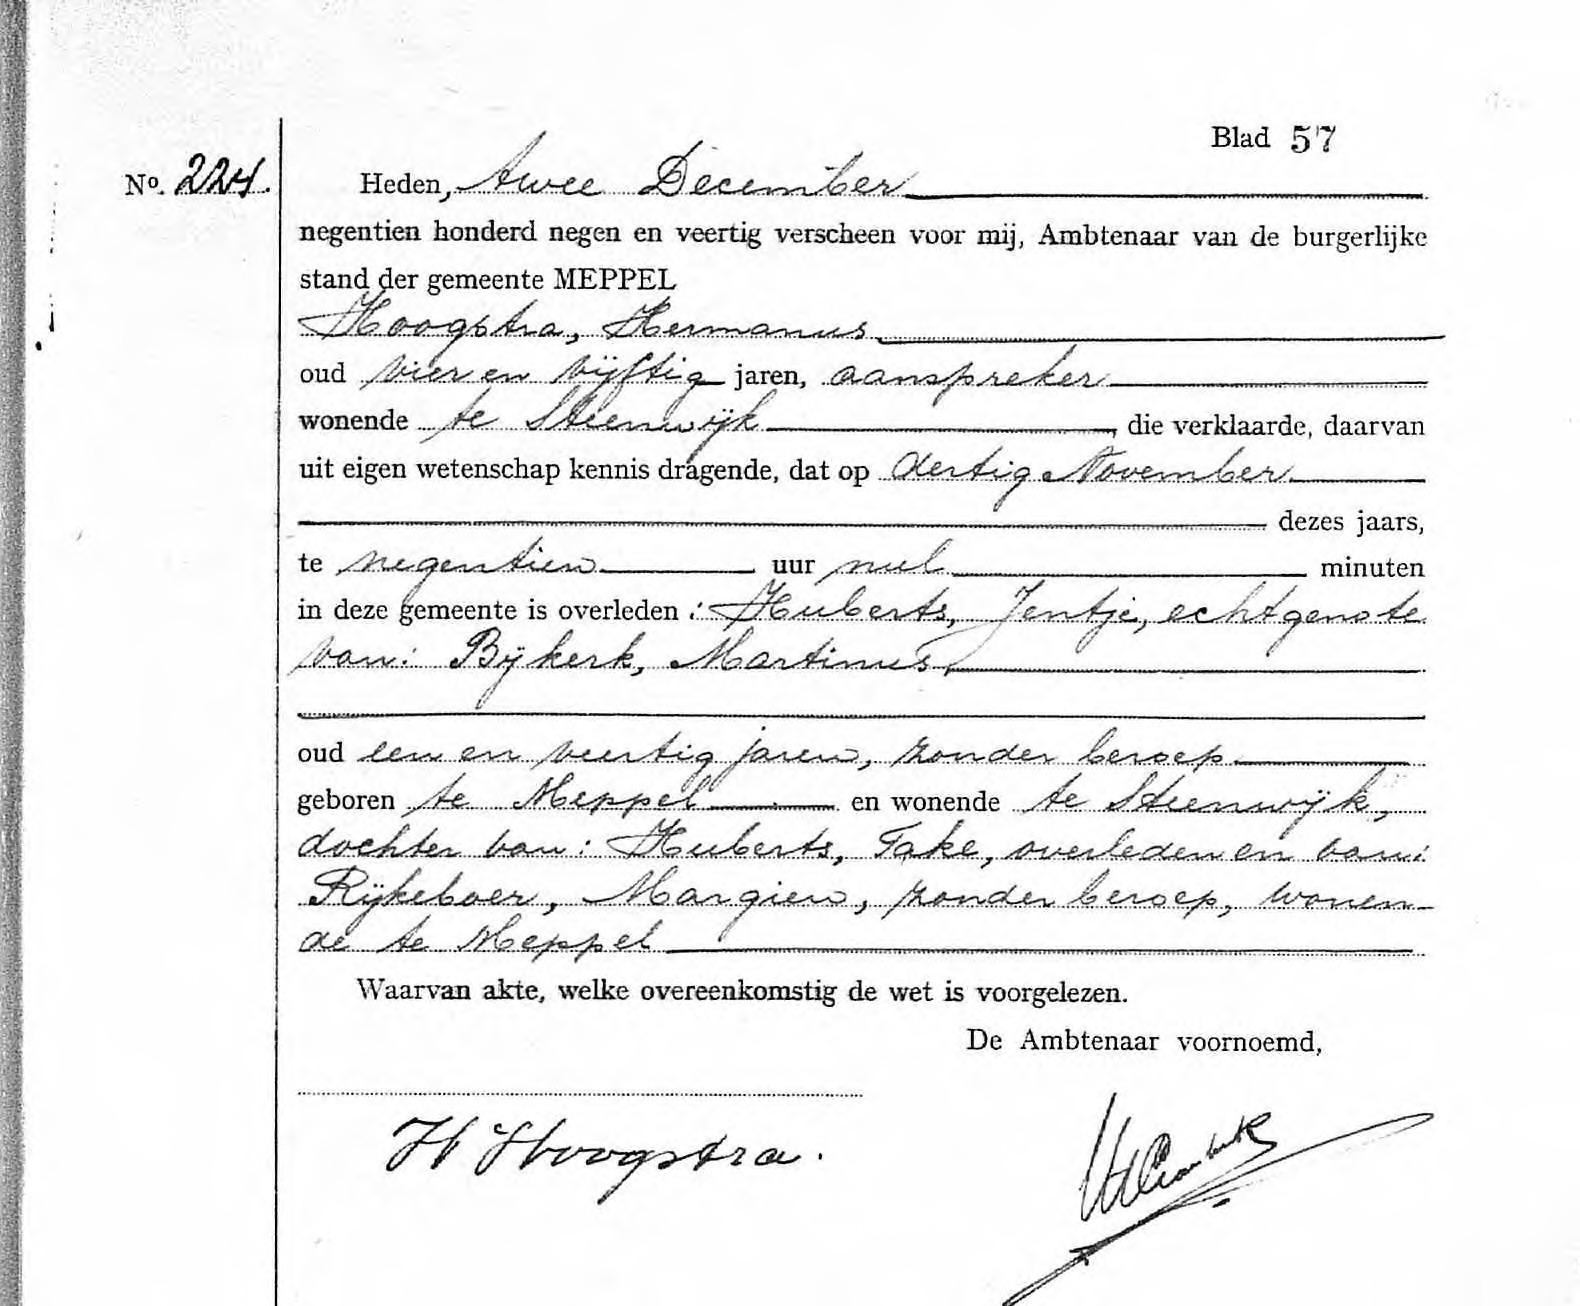 Blad 57
No. 224. Heden, twee December
negentien honderd negen en veertig verscheen voor mij, Ambtenaar van de burgerlijke
stand der gemeente MEPPEL
Hoogstra, Hermanus
oud vier en vijftig jaren, aanspreker
wonende te Steenwijk, die verklaarde, daarvan
uit eigen wetenschap kennis dragende, dat op dertig November
dezes jaars,
te negentien uur nul minuten
in deze gemeente is overleden : Huberts, Jentje, echtgenote
van: Bijkerk, Martinus,
oud een en veertig jaren, zonder beroep
geboren te Meppel en wonende te Steenwijk,
dochter van: Huberts, Take, overleden en van:
Rijkeboer, Margien, zonder beroep, wonen-
de te Meppel
Waarvan akte, welke overeenkomstig de wet is voorgelezen.
De Ambtenaar voornoemd,
H Hoogstra.